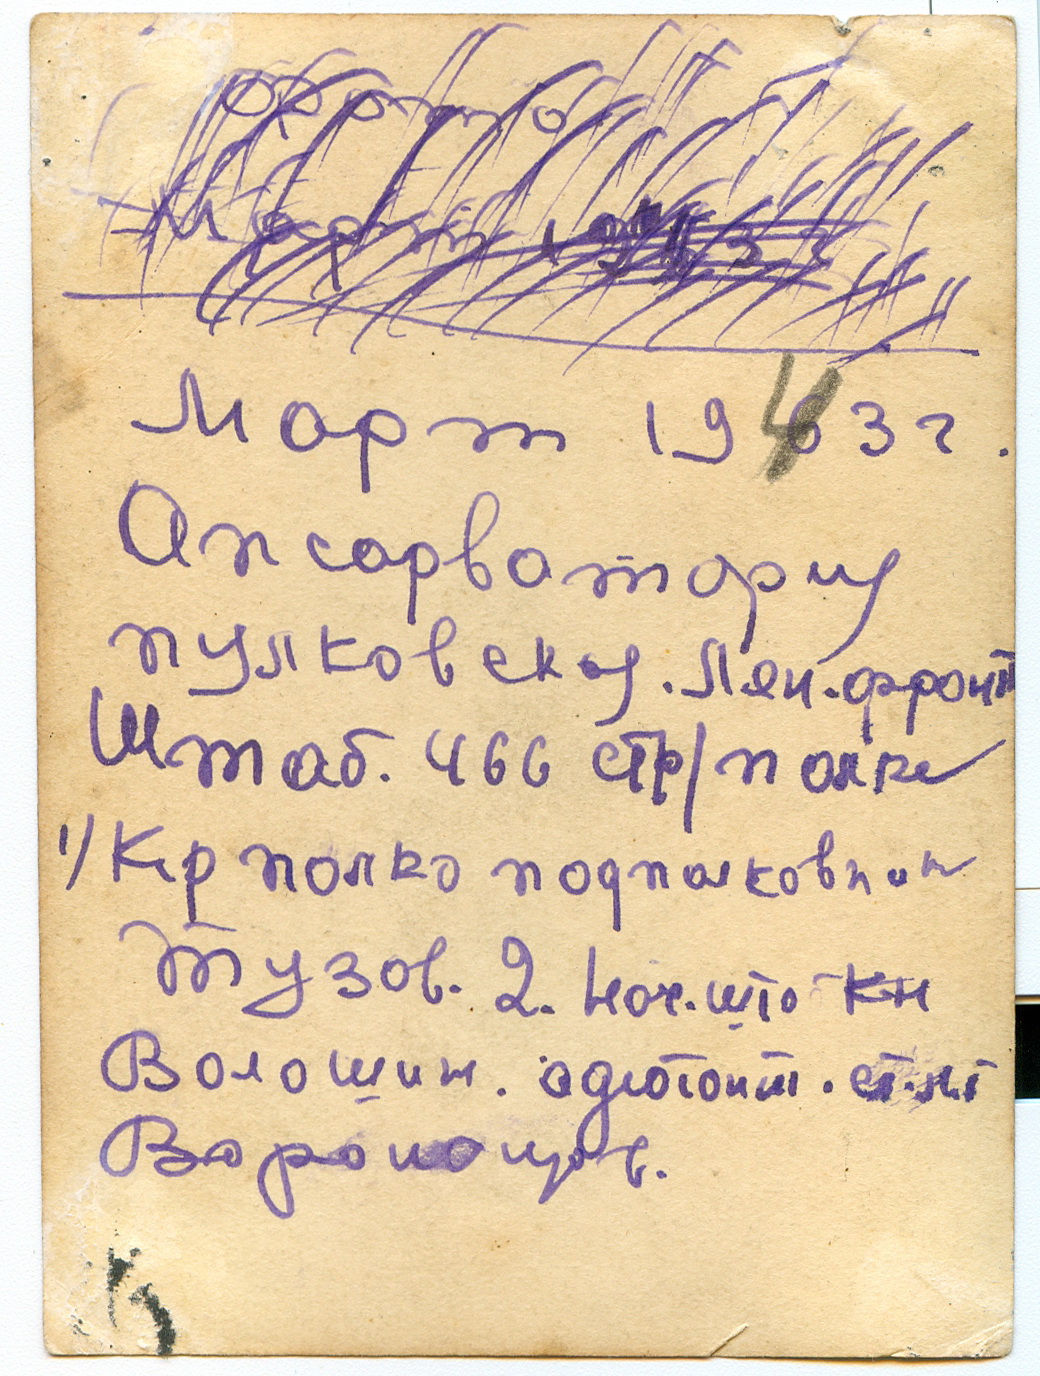 Март 1943 г.
Апсарватория
пулковская. Лен. фронт
Штаб. 466 стр/полка
1/ Кр полка подполковник
Тузов. 2. Нач. шта кн
Волошин. адютант. ст. лт